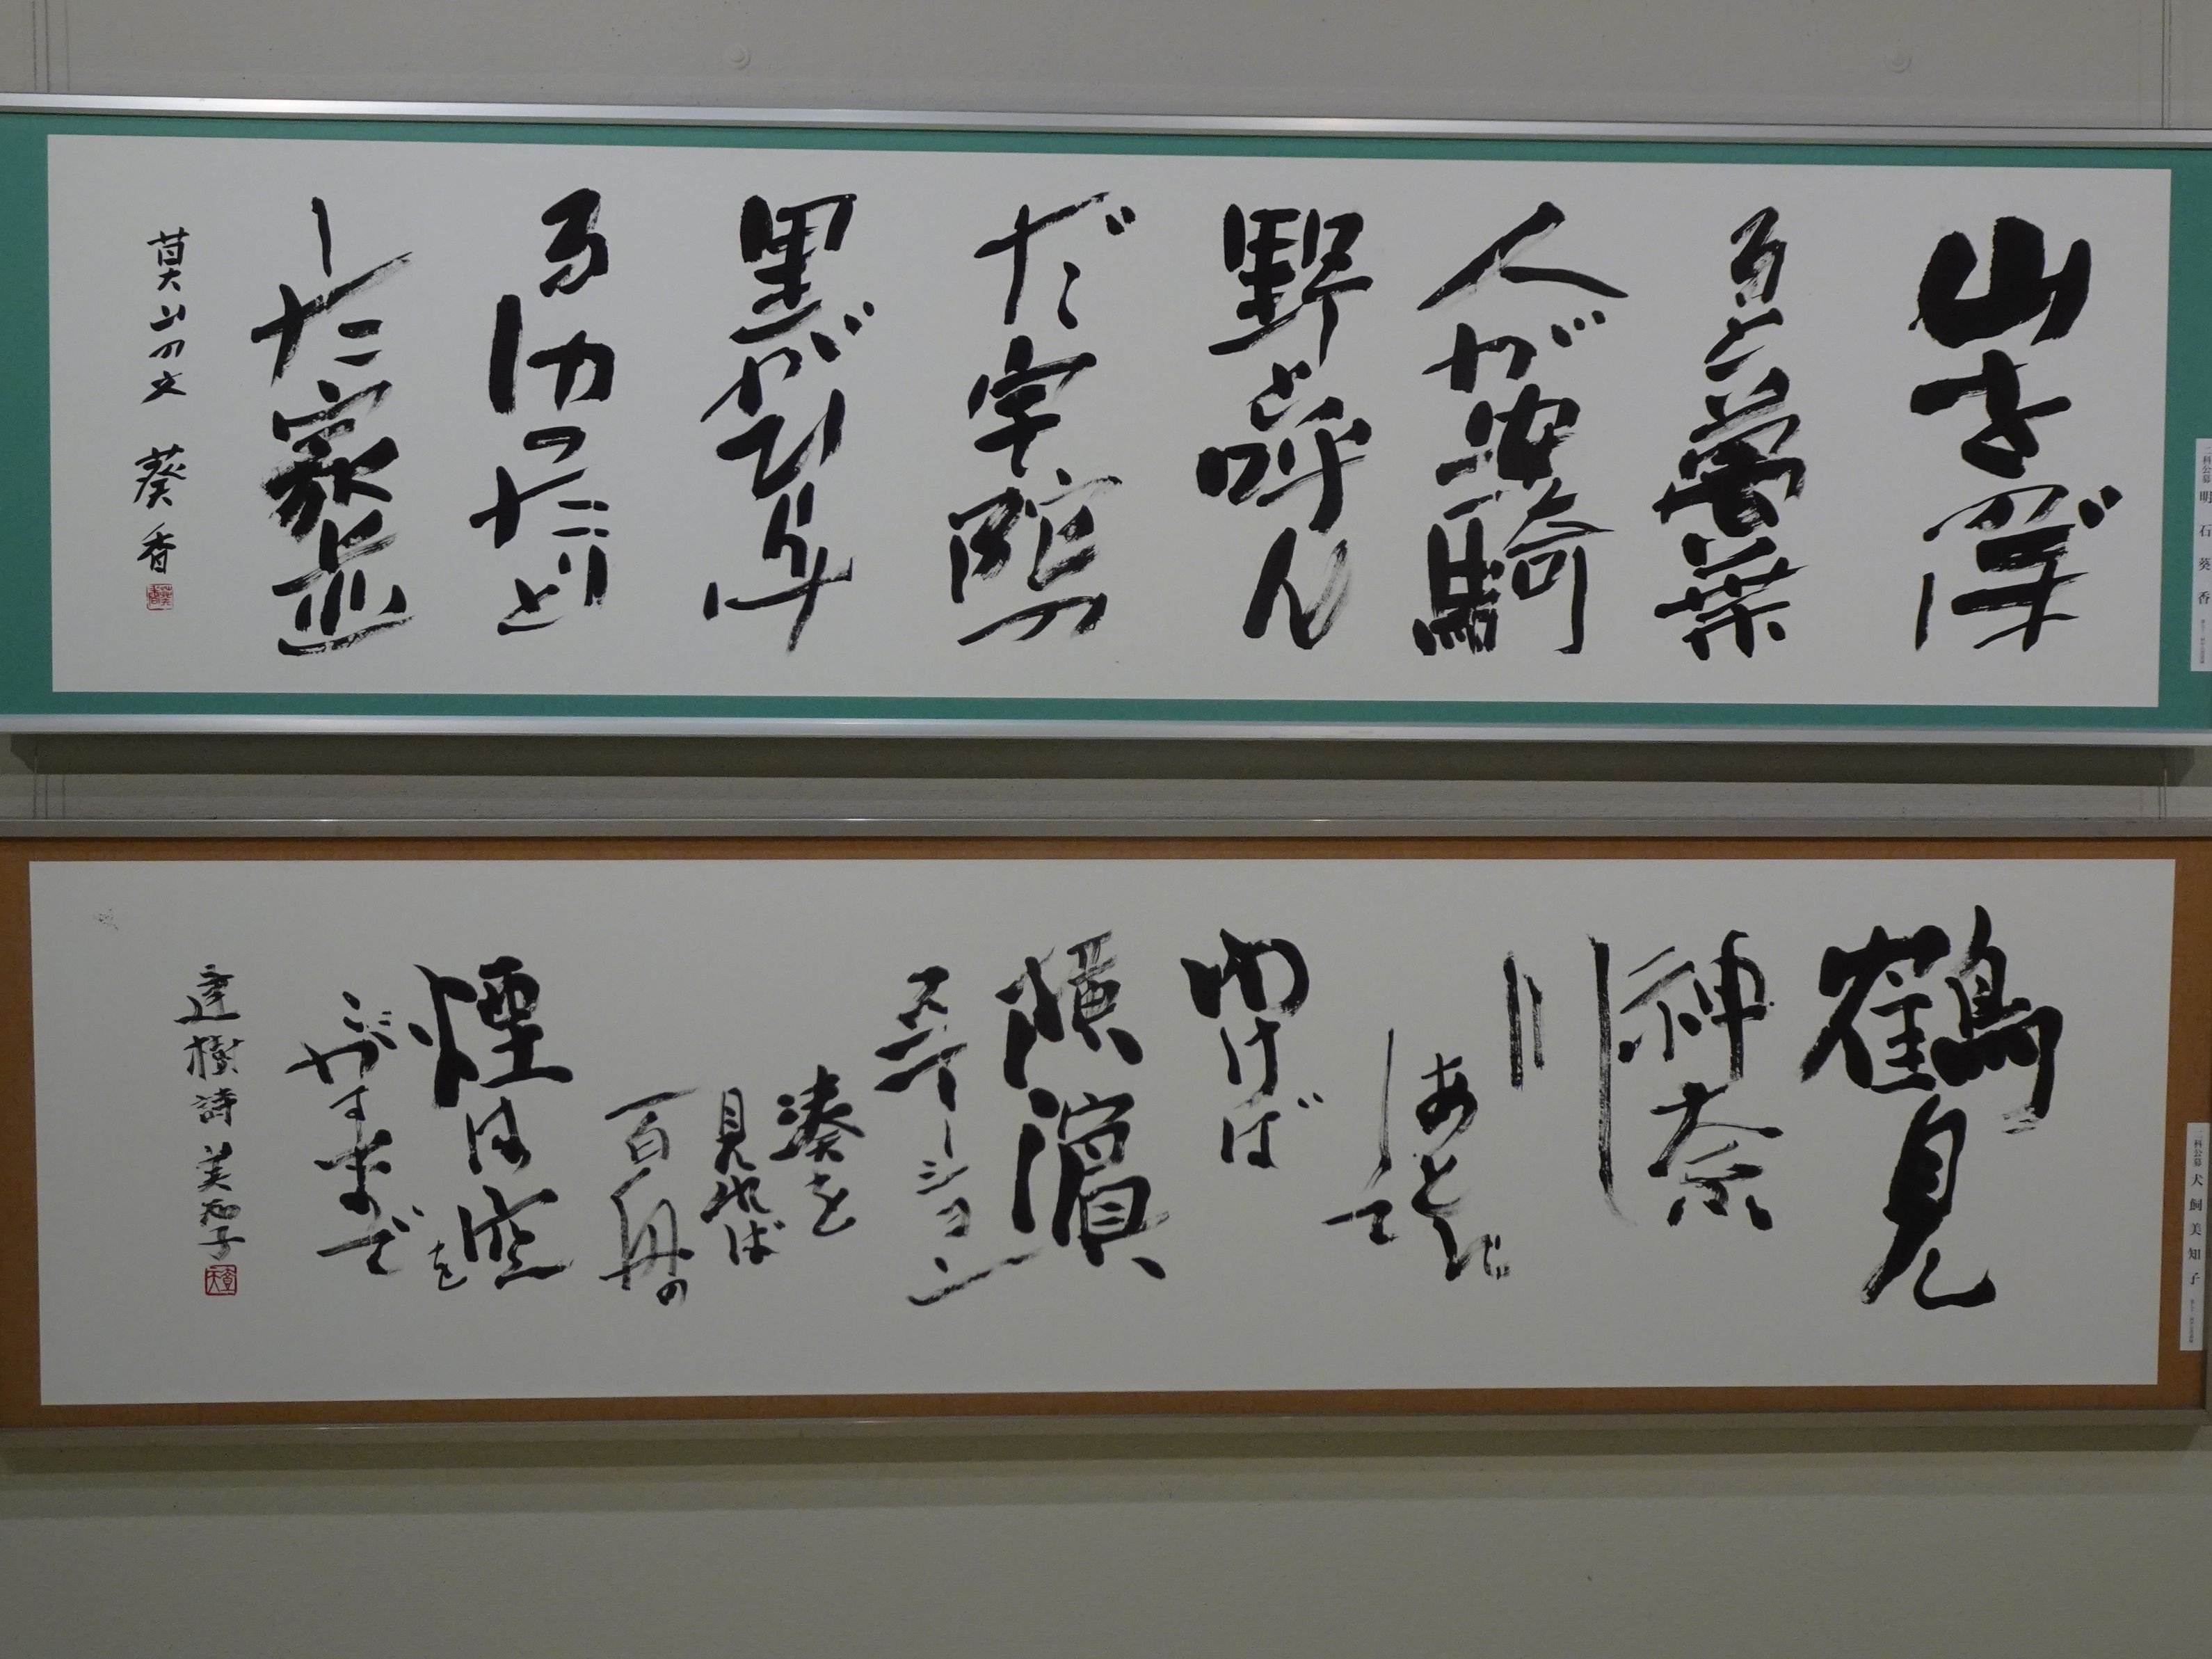 山をのぼ
ると萬葉
人が安騎
野と呼ん
だ宇陀の
里がひらけ
るゆったりと
した家並
莫山の文 葵香
二科公募 明石葵香
鶴見
神奈
川
あとに
して
ゆけば
横濱
ステーション
湊を
見れば
百舟の
煙は空を
こがすまで
建樹詩 美知子
科公募 犬飼美知子